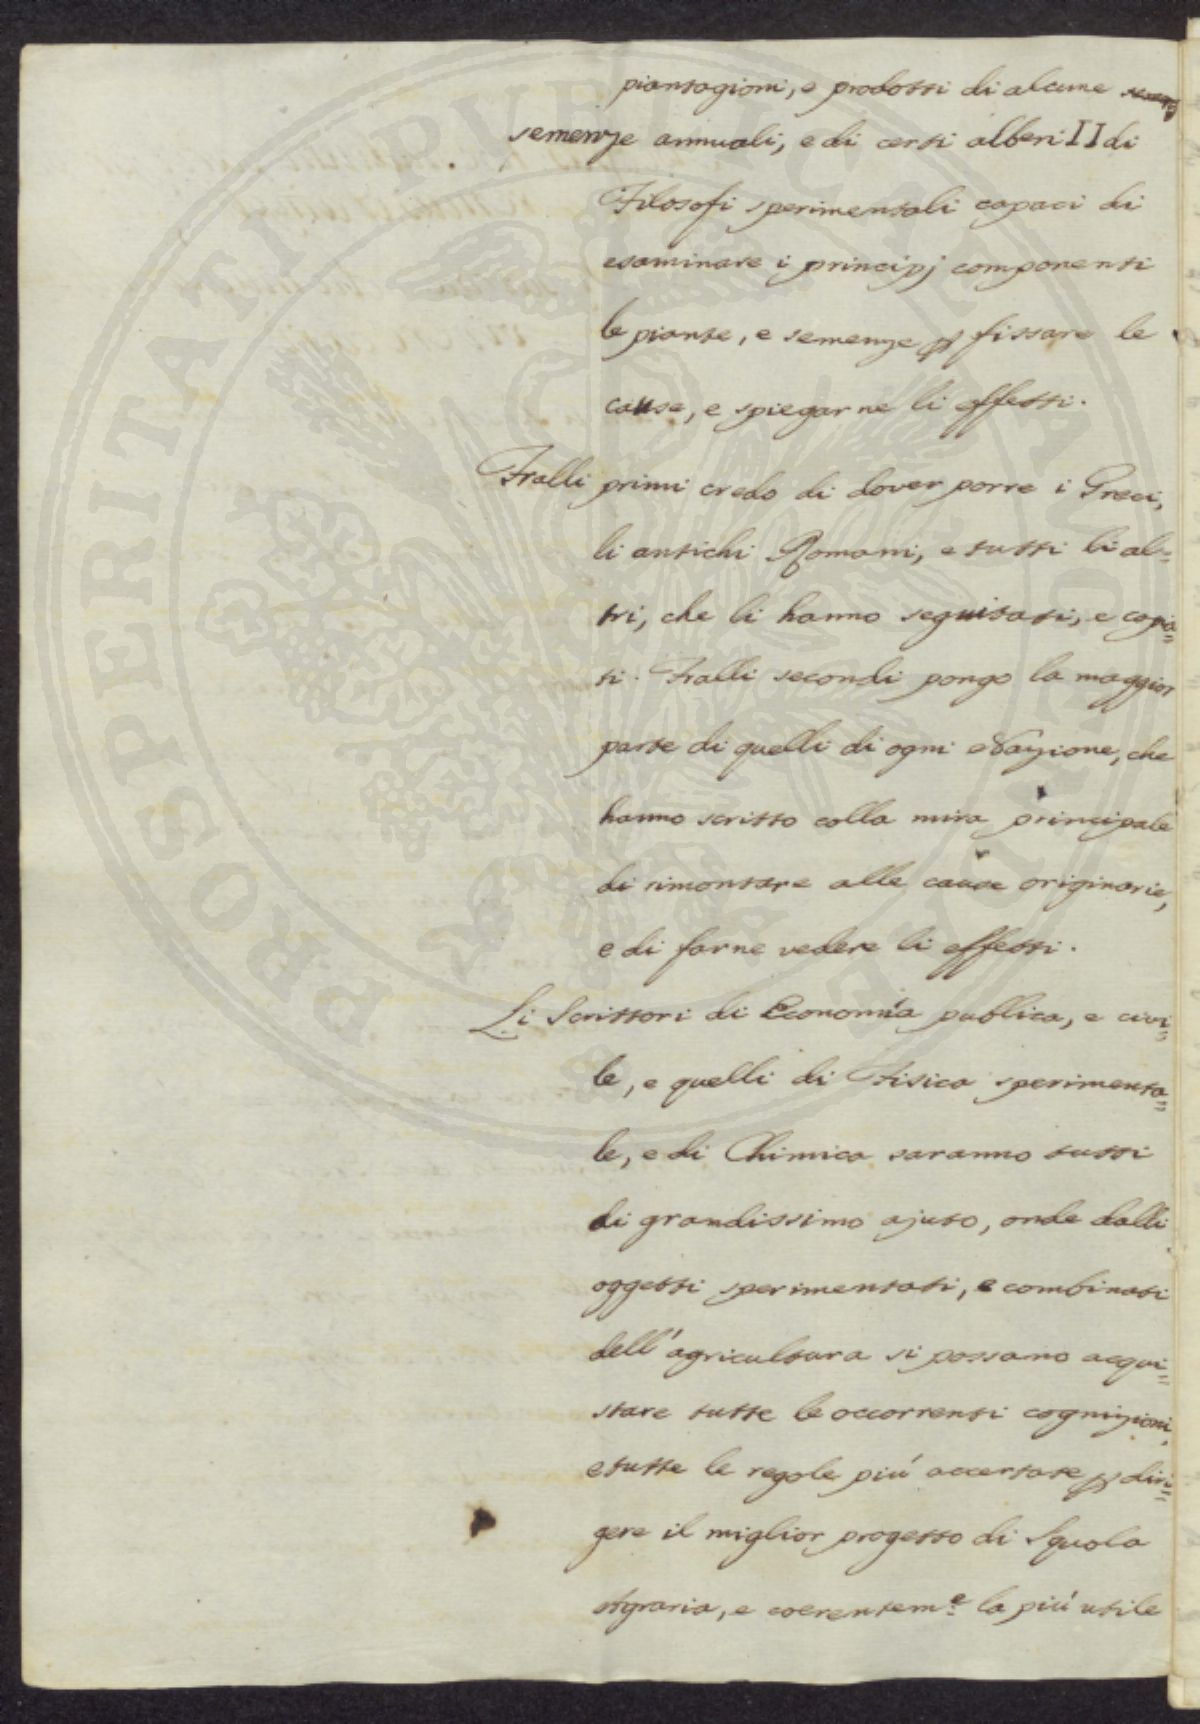 piantagioni, e prodotti di alcune
semenze annuali, e di certi alberi II di
Filosofi sperimentali capaci di
esaminare i principj componenti
le piante, e semenze ꝑ fissare le
cause, e spiegarne li effetti.
Fralli primi credo di dover porre i Greci,
li antichi Romani, e tutti li al=
tri, che li hanno seguitati, e copia=
ti. Fralli secondi pongo la maggior
parte di quelli di ogni Nazione, che
hanno scritto colla mira principale
di rimontare alle cause originarie,
e di farne vedere li effetti.
Li Scrittori di Economia publica, e civi=
le, e quelli di Fisica sperimenta=
le, e di Chimica saranno tutti
di grandissimo ajuto, onde dalli
oggetti sperimentati, e combinati
dell'agricultura si possano acqui=
stare tutte le occorrenti cognizioni,
e tutte le regole piú accertate ꝑ diri=
gere il miglior progetto di Squola
Agraria, e coerentem.e la piú utile
PROSPERITATI PUBLICAE AUGENDAE